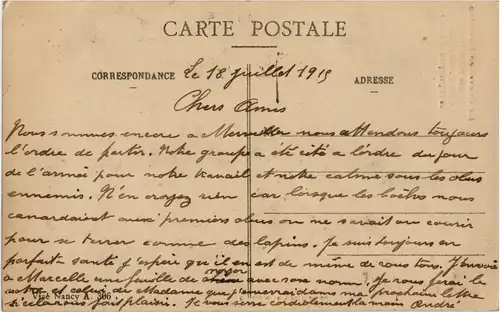 CARTE POSTALE
CORRESPONDANCE
Le 18 juillet 1915
ADRESSE
Chers Amis
Nous sommes encore a nous attendons toujours
l'ordre de partir. Notre groupe a été cité a l'ordre du jour
de l'armée pour notre travail et notre calme sous les obus
ennemis. N'en croyez rien car lorsque les boches nous
canardaient aux premiers obus on ne savait ou courir
pour se terrer comme des lapins. Je suis toujours en
parfaite santé j'espère qu'il en est de même de vous tous. J'envoie
a Marcelle une feuille de avec son nom. Je vous ferai le
votre et celui de Madame que j'enverrai dans ma prochaine lettre
Visé Nancy A. 306
si cela vous fait plaisir. Je vous serre cordialement la main André